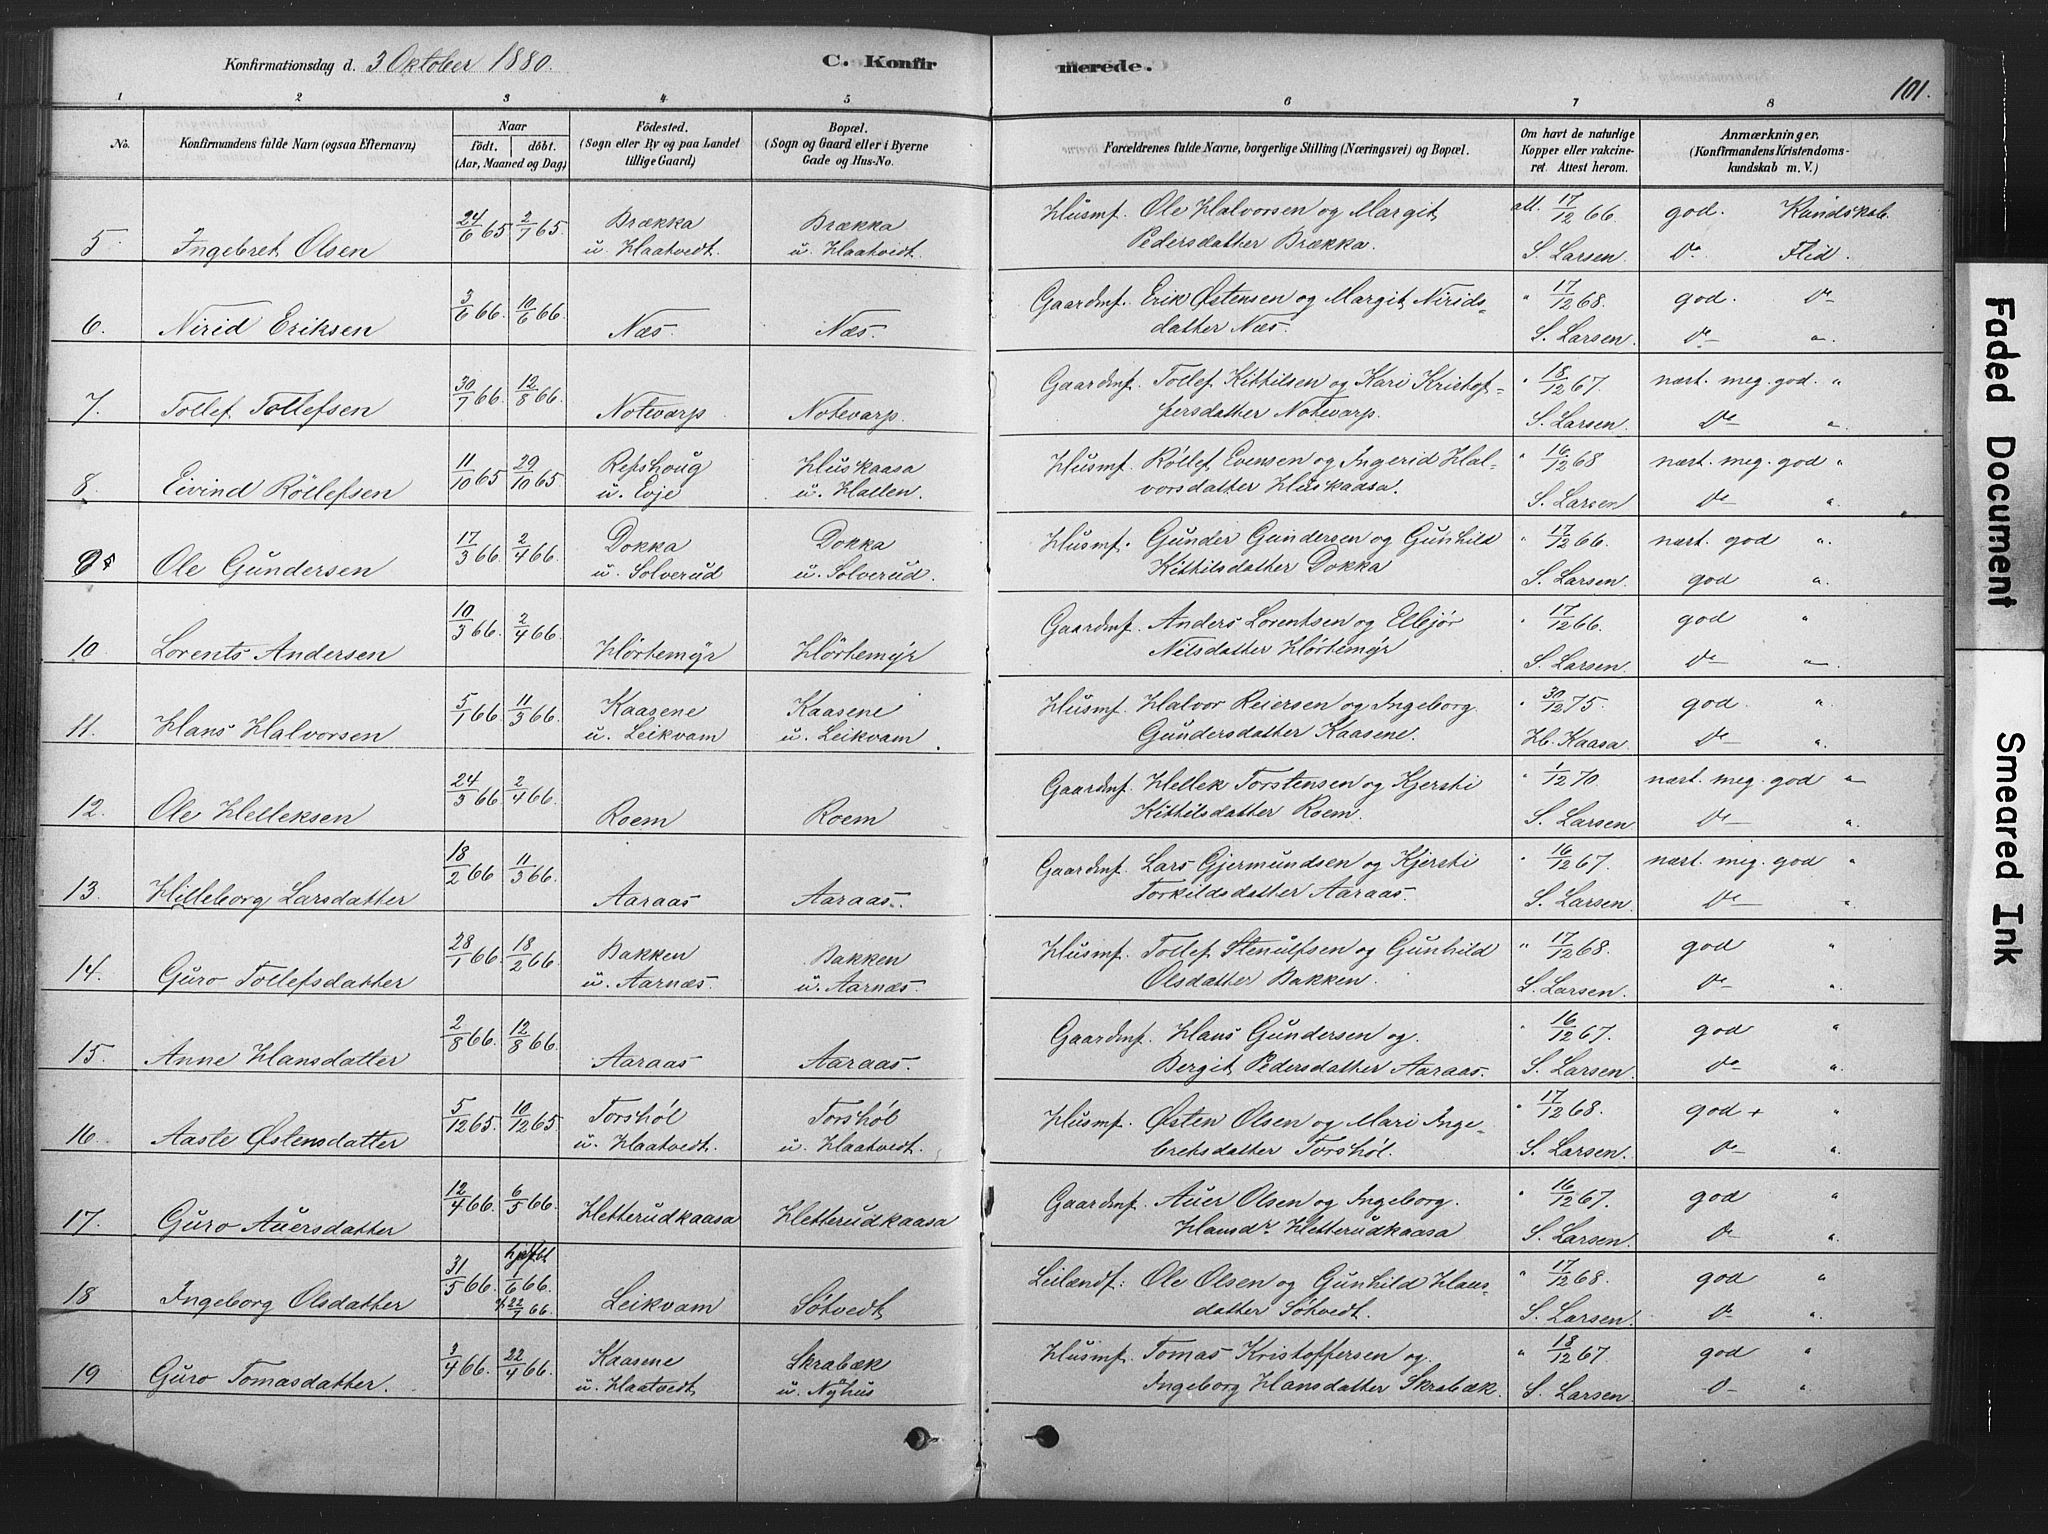 Konfirmationsdag d. 3 Oktober 1880. C. Konfirmerede. 101.
1 2 3 4 5 6 7 8
No. Konfirmandens fulde Navn (ogsaa Efternavn) Naar födt. döbt. (Aar, Maaned og Dag) Födested. (Sogn eller By og paa Landet tillige Gaard) Bopæl. (Sogn og Gaard eller i Byerne Gade og Hus-No. Forældrenes fulde Navne, borgerlige Stilling (Næringsvei) og Bopæl. Om havt de naturlige Kopper eller vakcineret. Attest herom. Anmærkninger, (Konfirmandens Kristendomskundskab m. V.)
5. Ingebret Olsen 24/6 65 2/7 65 Brækka u. Haatvedt. Brækka u. Haatvedt. Husmf. Ole Halvorsen og Margit Pedersdatter Brækka. att. 17/12 66. S. Larsen. god. Kundskab. Do Flid.
6. Nirid Eriksen 3/6 66. 10/6 66. Næs. Næs. Gaardmf. Erik Østensen og Margit Niridsdatter Næs. " 17/12 68. S. Larsen. god. Do Do "
7. Tollef Tollefsen 30/7 66. 12/8 66. Notevarp Notevarp. Gaardmf. Tollef Kittilsen og Kari Kristoffersdatter Notevarp. " 18/12 67. S. Larsen. næst. meg. god. " Do "
8. Eivind Röllefsen 11/10 65 29/10 65 Refshoug u. Evje Huskaasa u. Hallen. Husmf. Röllef Evensen og Ingerid Halvorsdatter Huskaasa. " 16/12 68 S. Larsen næst. meg. god " Do "
Ole Gundersen 17/3 66. 2/4 66. Dokka u. Solverud Dokka u. Solverud. Husmf. Gunder Gundersen og Gunhild Kittilsdatter Dokka " 17/12 66. S. Larsen. næst. god " god "
10. Lorents Andersen 10/3 66. 2/4 66. Hörtemyr Hörtemyr Gaardmf. Anders Lorentsen og Ellbjør Nilsdatter Hörtemyr " 17/12 66. S. Larsen. god " Do "
11. Hans Halvorsen 5/1 66. 11/3 66. Kaasene u. Leikvam Kaasene u. Leikvam. Husmf. Halvor Reiersen og Ingeborg Gundersdatter Kaasene. " 30/12 75. H. Kaasa. god. " Do "
12. Ole Helleksen 24/3 66. 2/4 66. Roem Roem Gaardmf. Hellek Torstensen og Kjersti Kittilsdatter Roem. " 1/12 70. S. Larsen næst. meg. god " Do "
13. Hilleborg Larsdatter 18/2 66 11/3 66. Aaraas Aaraas. Gaardmf. Lars Gjermundsen og Kjersti Torkildsdatter Aaraas. " 16/12 67. S. Larsen. næst. meg. god " Do "
14. Guro Tollefsdatter 28/1 66. 18/2 66. Bakken u. Aarnæs. Bakken u. Aarnæs. Husmf. Tollef Stenulfsen og Gunhild Olsdatter Bakken. " 17/12 68. S. Larsen. god " Do "
15. Anne Hansdatter 2/8 66. 12/8 66. Aaraas Aaraas. Gaardmf. Hans Gundersen og Bergit Pedersdatter Aaraas. " 16/12 67. S. Larsen. god " Do "
16. Aaste Østensdatter 5/12 65. 10/12 65 Torshöl u. Haatvedt. Torshöl u. Haatvedt. Husmf. Østen Olsen og Mari Ingebretsdatter Torshöl. " 17/12 68. S. Larsen. god + " Do "
17. Guro Auersdatter 12/4 66. 6/5 66. Hetterudkaasa Hetterudkaasa Gaardmf. Auer Olsen og Ingeborg Hansdr. Hetterudkaasa " 16/12 67. S. Larsen. god " Do "
18 Ingeborg Olsdatter 31/5 66. hjdbt 1/6 66. 22/7 66. Leikvam Sötvedt Leilændf. Ole Olsen og Gunhild Hansdatter Sötvedt. " 17/12 68. S. Larsen. god " Do "
19 Guro Tomasdatter. 3/4 66. 22/4 66. Kaasene u. Haatvedt Skrabæk u. Nyhus Husmf. Tomas Kristoffersen og Ingeborg Hansdatter Skrabæk. " 18/12 67. S. Larsen. god " Do "
Faded Document
Smeared Ink